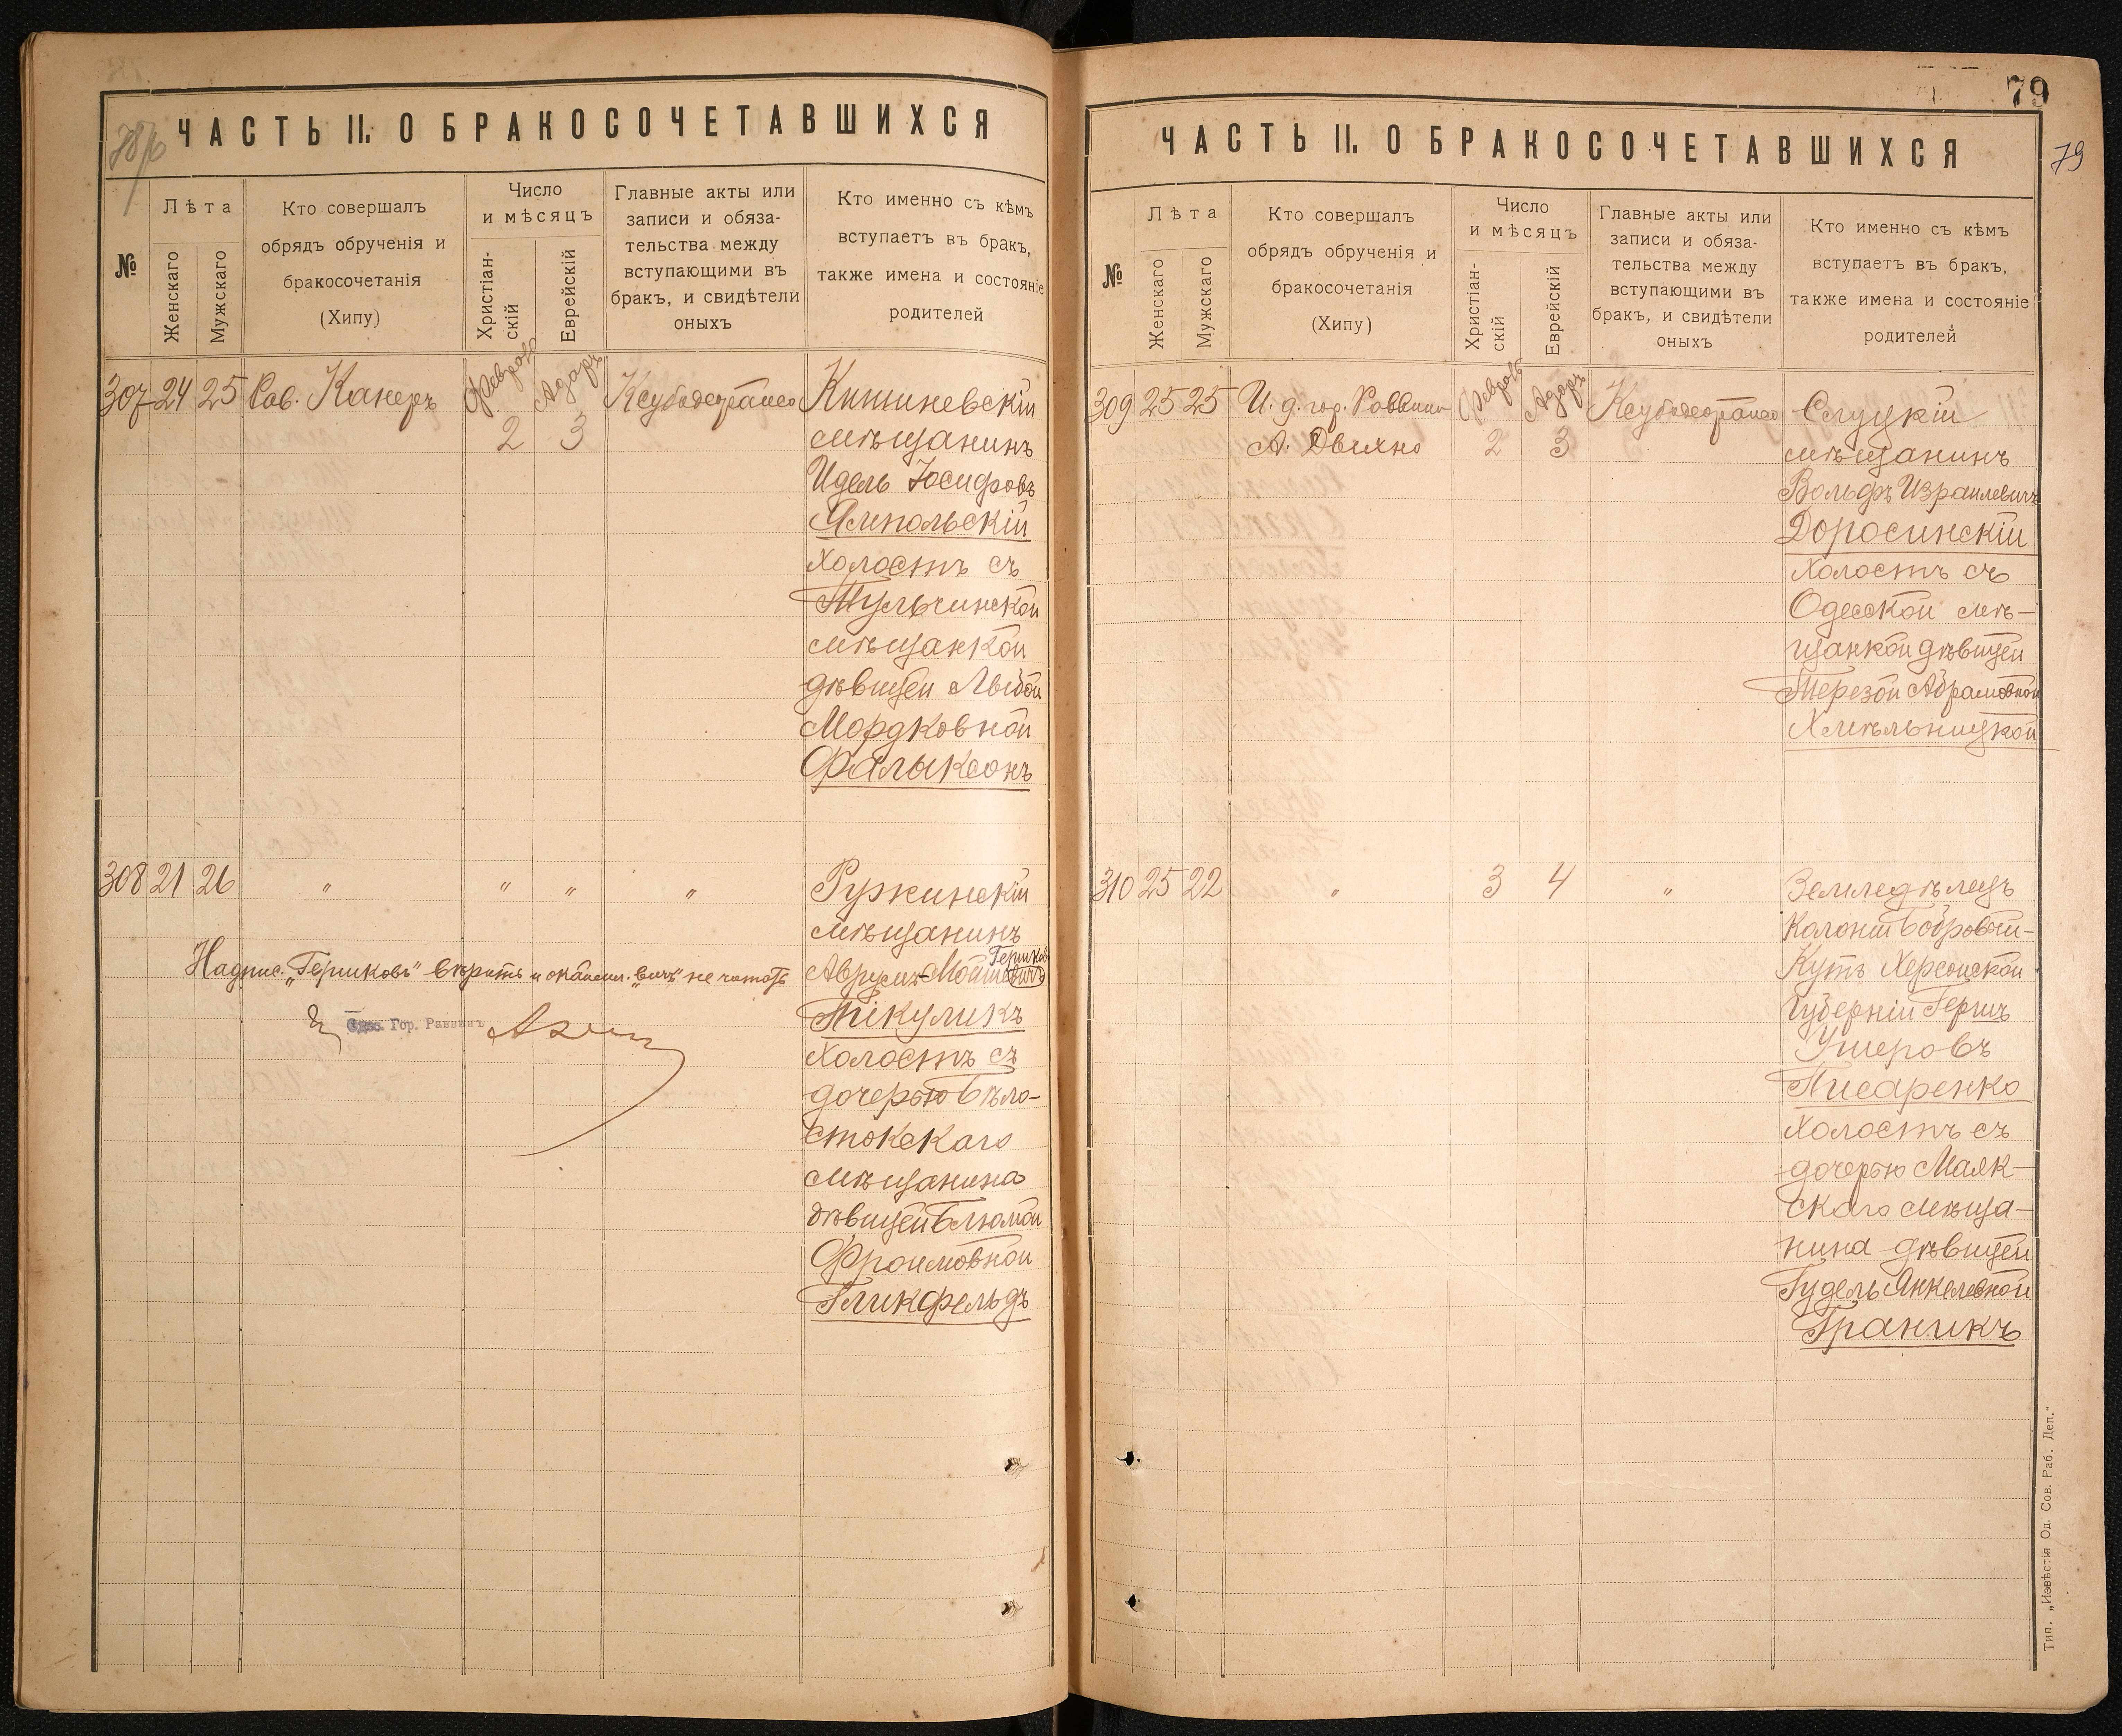 78/б
ЧАСТЬ II. О БРАКОСОЧЕТАВШИХСЯ
№
Лѣта
Женскаго
Мужскаго
Кто совершалъ
обрядъ обрученія и
бракосочетанія
(Хипу)
Число
и мѣсяцъ
Христіан-
скій
Еврейскій
Главные акты или
записи и обяза-
тельства между
вступающими въ
бракъ, и свидѣтели
оныхъ
Кто именно съ кѣмъ
вступаетъ въ бракъ,
также имена и состояніе
родителей
307 24 25 Рав. Канеръ Февраль 2 Адаръ 3
Кишиневскій
мѣщанинъ
Идель Іосифовъ
Ямпольскій
холостъ съ
Тульчинской
мѣщанкой
дѣвицей Лыбой
Мордковной
Фалыксонъ
308 21 26 " " " "
Ружинскій
мѣщанинъ
Гершковъ
Аврумъ-Мошковичъ
Пікуликъ
холостъ съ
дочерью Бѣло-
стокскаго
мѣщанина
дѣвицей Блюмой
Фроимовной
Гликфельдъ
Надпис. „Гершковъ“ вѣрить и окончан. „вичъ“ не читать
Гор. Раввинъ
79
79
ЧАСТЬ II. О БРАКОСОЧЕТАВШИХСЯ
№
Лѣта
Женскаго
Мужскаго
Кто совершалъ
обрядъ обрученія и
бракосочетанія
(Хипу)
Число
и мѣсяцъ
Христіан-
скій
Еврейскій
Главные акты или
записи и обяза-
тельства между
вступающими въ
бракъ, и свидѣтели
оныхъ
Кто именно съ кѣмъ
вступаетъ въ бракъ,
также имена и состояніе
родителей
309 25 25 И. д. гор. Раввина Февраль Адаръ
А. Двихно 2 3
Слуцкій
мѣщанинъ
Вольфъ Израилевичъ
Доросинскій
холостъ съ
Одесской мѣ-
щанкой дѣвицей
Терезой Абрамовной
Хмѣльницкой
310 25 22 " 3 4 "
Земледѣлецъ
Колоніи Бобровый-
Кутъ Херсонской
Губерніи Гершъ
Ушеровъ
Писаренко
холостъ съ
дочерью Маяк-
скаго мѣща-
нина дѣвицей
Гудель Янкелевной
Граникъ
Тип. „Извѣстія Од. Сов. Раб. Деп.“